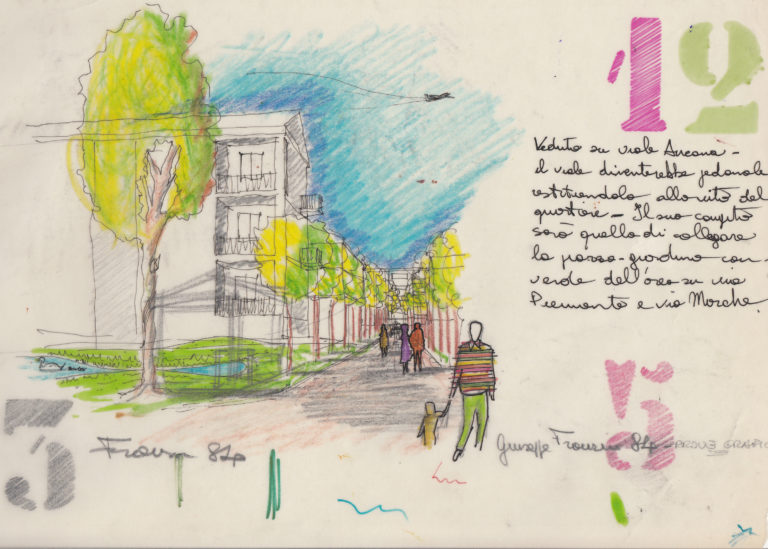 12
Veduta su viale Ancona -
il viale diventerebbe pedonale
restituendolo alla vita del
quartiere - Il suo compito
sarà quello di collegare
la piazza-giardino con
verde dell'area su via
Piemonte e via Marche.
5
3
Giuseppe 84 PROVE GRAFIC
84